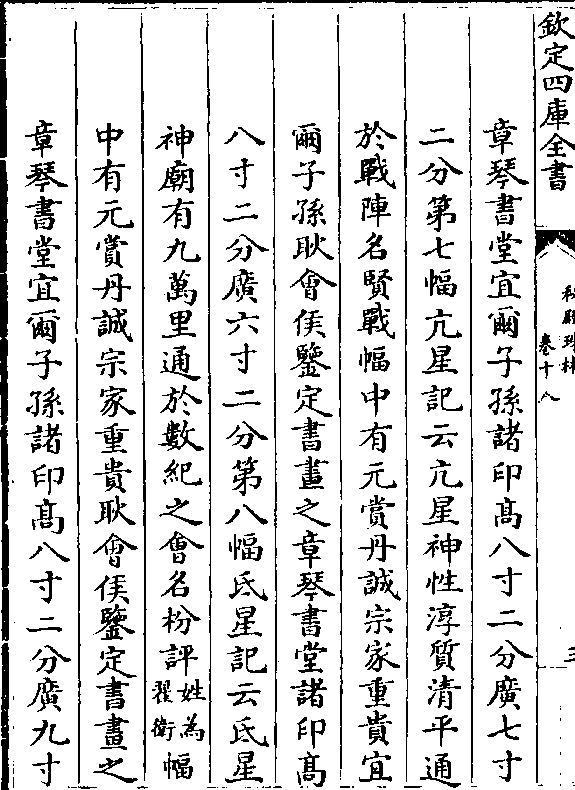 欽定四庫全書
秘殿珠林
卷十八
三
章琴書堂宜爾子孫諸印髙八寸二分廣七寸
二分第七幅亢星記云亢星神性淳質清平通
於戰陣名賢戰幅中有元賞丹誠宗家重貴宜
爾子孫耿會侯鑒定書畫之章琴書堂諸印髙
八寸二分廣六寸二分第八幅氐星記云氐星
神廟有九萬里通於數紀之會名枌評姓為翟衛幅
中有元賞丹誠宗家重貴耿會侯鑒定書畫之
章琴書堂宜爾子孫諸印髙八寸二分廣九寸